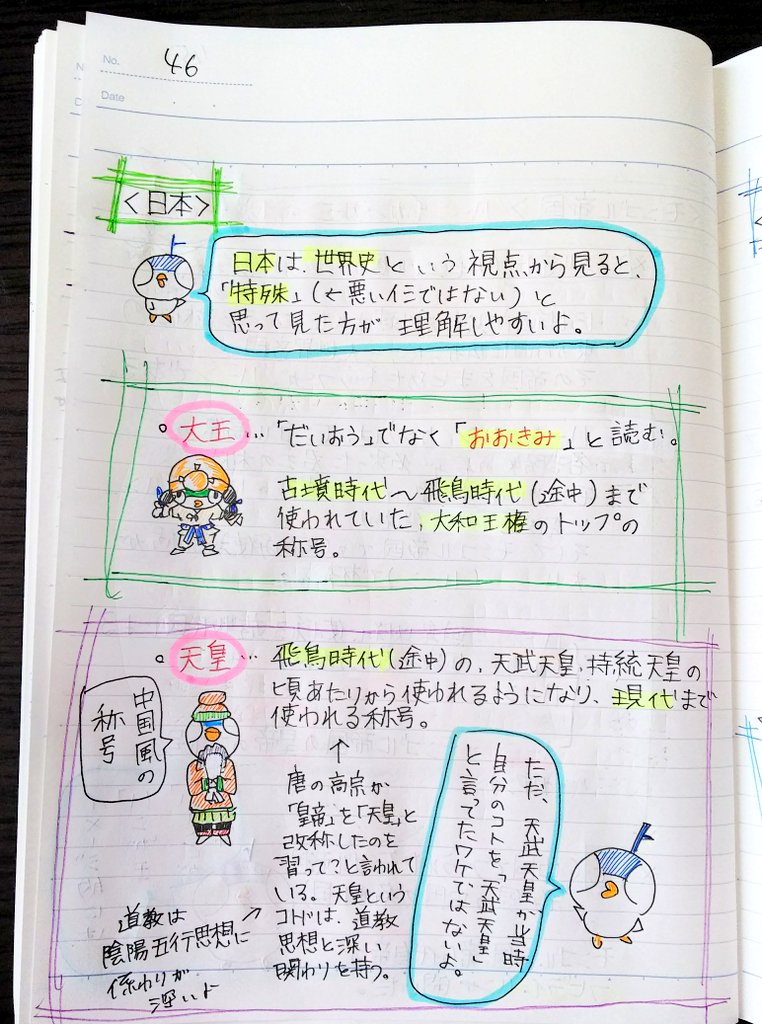 No. 46
Date
<日本>
日本は、世界史という視点から見ると、
「特殊」(←悪いイミではない)と
思って見た方が理解しやすいよ。
○ 大王…「だいおう」でなく「おおきみ」と読む。
古墳時代～飛鳥時代(途中)まで
使われていた、大和王権のトップの
称号。
○ 天皇… 飛鳥時代(途中)の、天武天皇、持統天皇の
頃あたりから使われるようになり、現代まで
使われる称号。
中国風の
称号
↑
唐の高宗が
「皇帝」を「天皇」と
改称したのを
習って?と言われて
いる。天皇という
コトバは、道教
思想と深い
関わりを持つ。
道教は
陰陽五行思想に
係わりが
深いよ
ただ、天武天皇が当時
自分のコトを「天武天皇」
と言ってたワケではないよ。